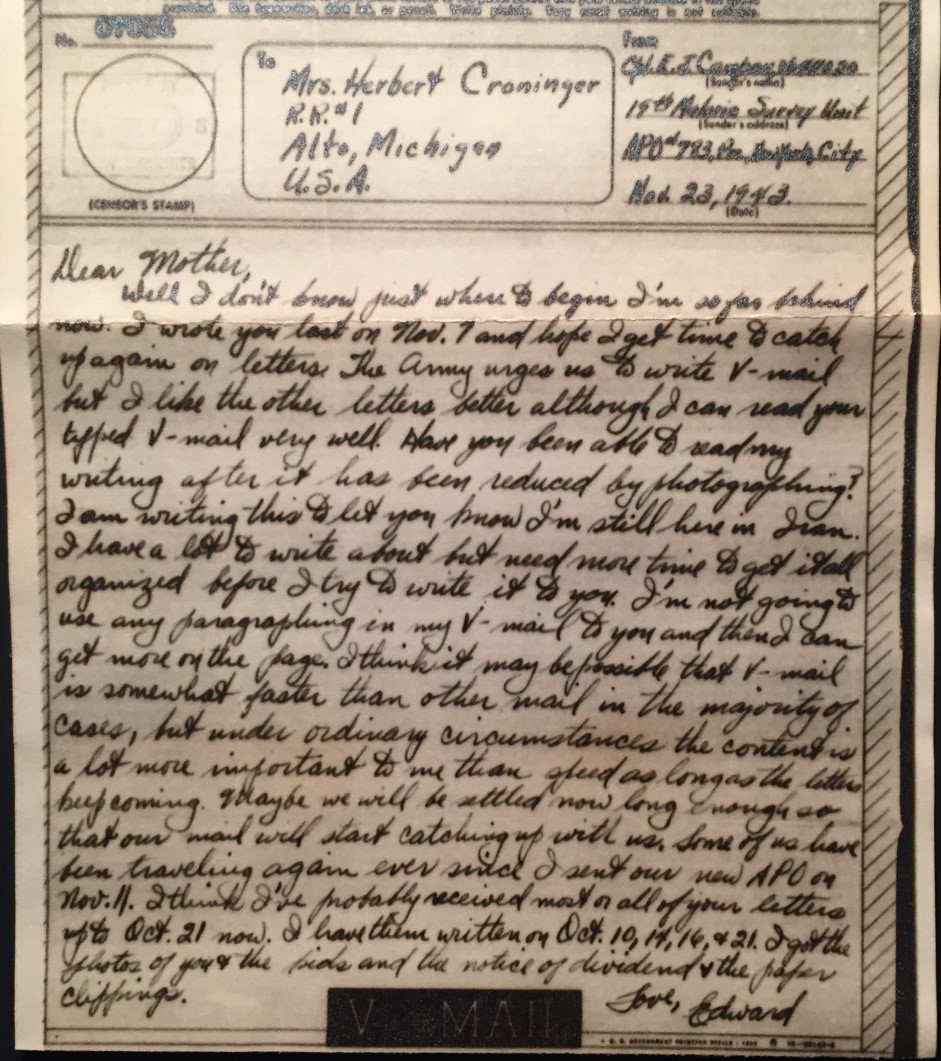 provided. Use typewriter, dark ink, or pencil. Write plainly. Very small writing is not suitable.
No.
(CENSOR'S STAMP)
To
Mrs. Herbert Croninger
R.R. #1
Alto, Michigan
U.S.A.
From
Cpl. E. J.
(Sender's name)
19th Survey Unit
(Sender's address)
APO # 783, New York City
Nov. 23, 1943.
(Date)
Dear Mother,
Well I don't know just where to begin I'm so far behind
now. I wrote you last on Nov. 7 and hope I get time to catch
up again on letters. The Army urges us to write V-mail
but I like the other letters better although I can read your
typed V-mail very well. Have you been able to read my
writing after it has been reduced by photographing?
I am writing this to let you know I'm still here in Iran.
I have a lot to write about but need more time to get it all
organized before I try to write it to you. I'm not going to
use any paragraphing in my V-mail to you and then I can
get more on the page. I think it may be possible that V-mail
is somewhat faster than other mail in the majority of
cases, but under ordinary circumstances the content is
a lot more important to me than speed as long as the letters
keep coming. Maybe we will be settled now long enough so
that our mail will start catching up with us. Some of us have
been traveling again ever since I sent our new APO on
Nov. 11. I think I've probably received most or all of your letters
up to Oct. 21 now. I have them written on Oct. 10, 14, 16, & 21. I got the
photos of you & the kids and the notice of dividend & the paper
clippings.
Love, Edward
V-MAIL
U.S. GOVERNMENT PRINTING OFFICE